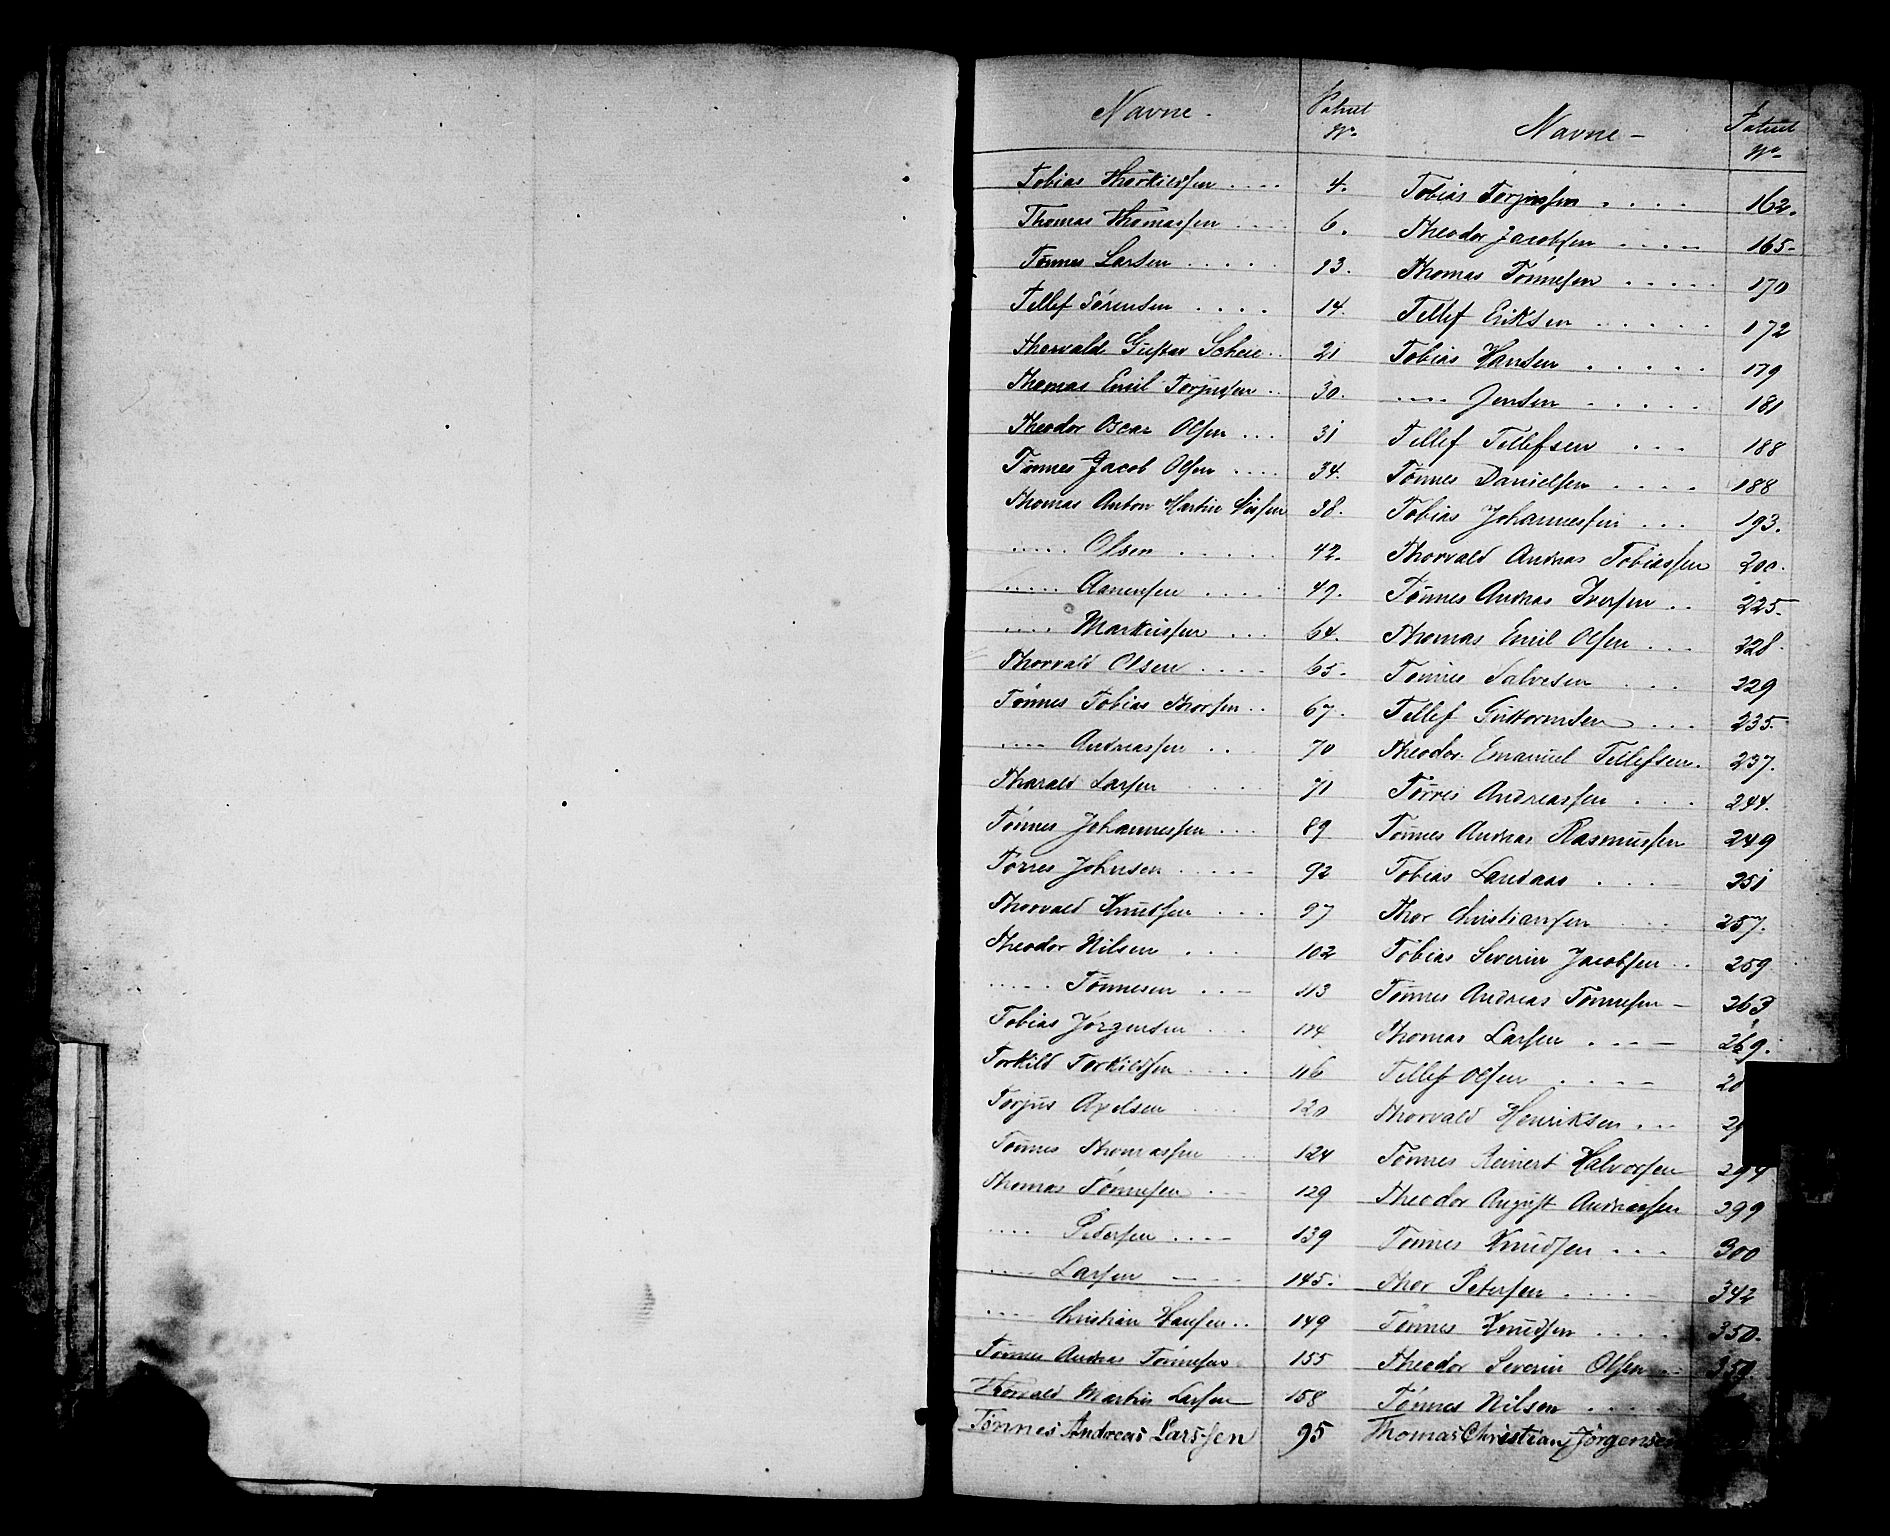 Navne -
Patent
No
Tobias Thorkildsen .... 4.
Thomas Thomassen .... 6.
Tønnes Larsen ..... 13.
Tellef Sørensen .... 14.
Thorvald Gustav Scheie .. 21
Thomas Emil Torjusen .. 30.
Theodor Oscar Olsen ... 31
Tønnes Jacob Olsen .... 34.
Thomas Anton Martin 38.
..... Olsen ..... 42.
..... Aanensen .... 49.
.... Markussen ... 64.
Thorvald Olsen .... 65.
Tønnes Tobias Thorsen .. 67.
.... Andreassen ... 70
Tharald Larsen .... 71
Tønnes Johannessen ... 89
Tørres Johnsen ..... 92
Thorvald Knudsen ... 97
Theodor Nilsen .... 102
..... Tønnesen ... 113
Tobias Jørgensen ... 114
Torkild Torkildsen .... 116
Torjus Axelsen ... 120
Tønnes Thomassen ... 124
Thomas Tønnesen ... 129
.... Pedersen .... 139
.... Larsen .... 145.
.... Christian Hansen .. 149
Tønnes Andreas Tønnesen 155
Thorvald Martin Larsen 158
Tønnes Andreas Larssen 95
Navne -
Patent
No
Tobias Torjussen .... 162.
Theodor Jacobsen .... 165-
Thomas Tønnesen ..... 170
Tellef Eriksen ..... 172
Tobias Hansen ..... 179
.... Jensen ..... 181
Tellef Tellefsen ... 188
Tønnes Danielsen .... 188
Tobias Johannessen ... 193.
Thorvald Andreas Tobiassen 200.
Tønnes Andreas Iversen .. 225.
Thomas Emil Olsen ... 228.
Tønnes Salvesen ... 229
Tellef Guttormsen ... 235.
Theodor Emanuel Tellefsen. 237.
Tørres Andreassen ... 244.
Tønnes Andreas Rasmussen 249
Tobias Landaas .... 251
Thor Christiansen ... 257.
Tobias Severin Jacobsen .. 259
Tønnes Andreas Tønnesen - 263
Thomas Larsen .... 269.
Tellef Olsen ....
Thorvald Henriksen ...
Tønnes Reinert Halvorsen
Theodor August Andreassen 299
Tønnes Knudsen ... 300
Thor Petersen ..... 342
Tønnes Knudsen .... 350.
Theodor Severin Olsen ... 359.
Tønnes Nilsen ...
Thomas Christian Jørgensen